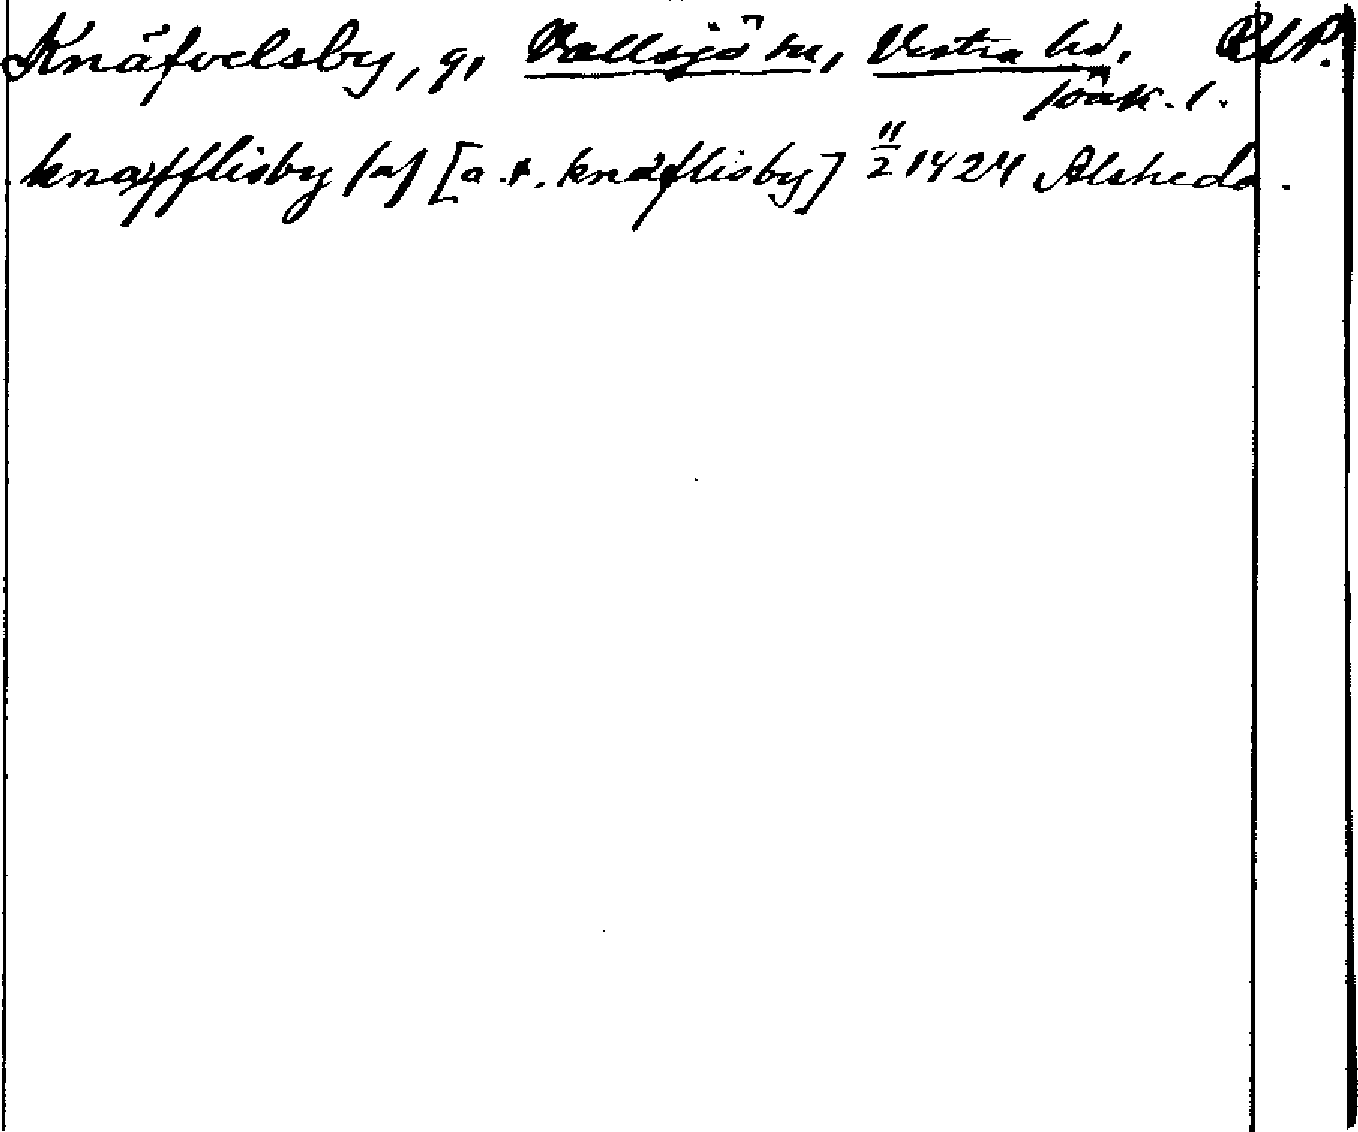 Knäfvelsby, g, Vallsjö sn, Vestra hd, RAP.
Jönk. l.
knæfflisby (a) [a.t. knäflisby] 11/2 1424 Alsheda.